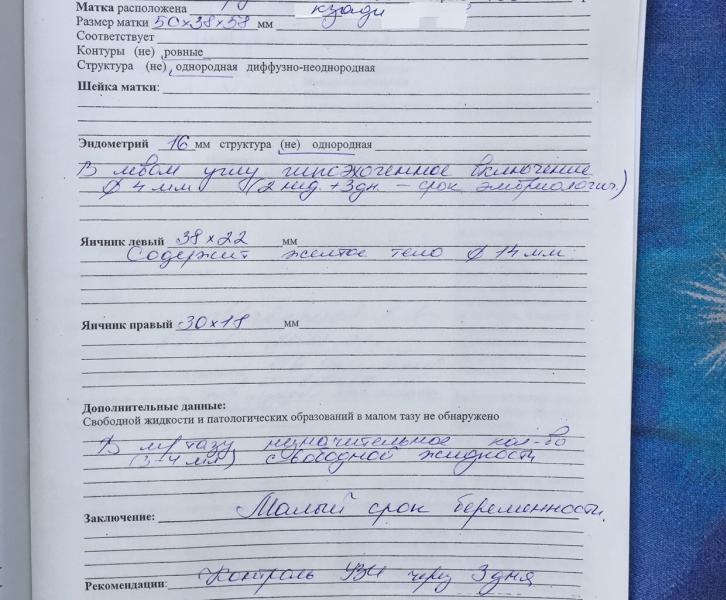 Матка расположена кзади
Размер матки 50х38х58 мм
Соответствует
Контуры (не) ровные
Структура (не) однородная диффузно-неоднородная
Шейка матки:
Эндометрий 16 мм структура (не) однородная
В левом углу гипоэхогенное включение
ø 4 мм (2 нед. + 3 дн. – срок эмбриологич.)
Яичник левый 38х22 мм
Содержит желтое тело ø 14 мм
Яичник правый 30х18 мм
Дополнительные данные:
Свободной жидкости и патологических образований в малом тазу не обнаружено
В м/тазу незначительное кол-во
(3-4 мм) свободной жидкости
Заключение: Малый срок беременности.
Рекомендации: Контроль УЗИ через 3 дня